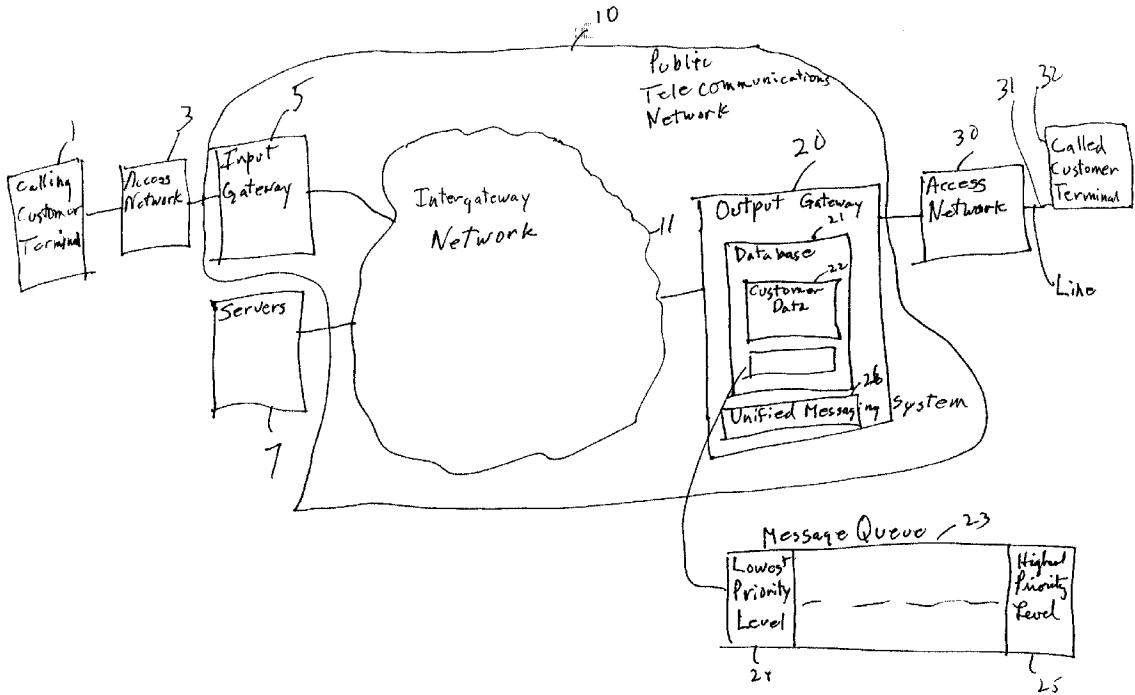 10
Public
Telecommunications
Network
1
3
5
Calling
Customer
Terminal
Access
Network
Input
Gateway
Intergateway
Network
11
Servers
7
20
Output Gateway
21
Database
22
Customer
Data
26
Unified Messaging System
30
Access
Network
31
32
Called
Customer
Terminal
Line
Message Queue
23
Lowest
Priority
Level
24
Highest
Priority
Level
25